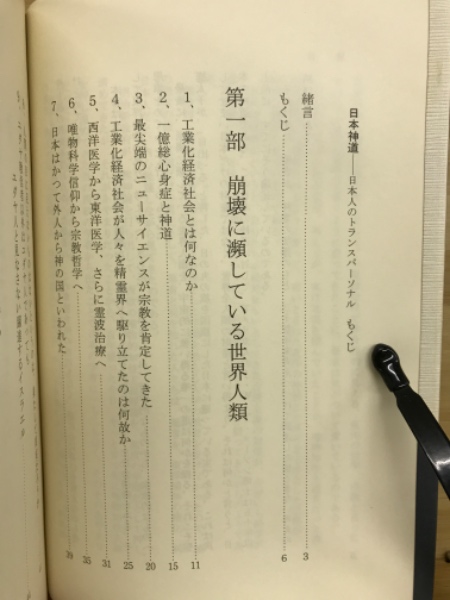 日本神道――日本人のトランスパーソナル もくじ
緒言…………3
もくじ…………6
第一部 崩壊に瀕している世界人類
1、工業化経済社会とは何なのか…………11
2、一億総心身症と神道…………15
3、最尖端のニューサイエンスが宗教を肯定してきた…………20
4、工業化経済社会が人々を精霊界へ駆り立てたのは何故か…………25
5、西洋医学から東洋医学、さらに霊波治療へ…………31
6、唯物科学信仰から宗教哲学へ…………35
7、日本はかつて外人から神の国といわれた…………39